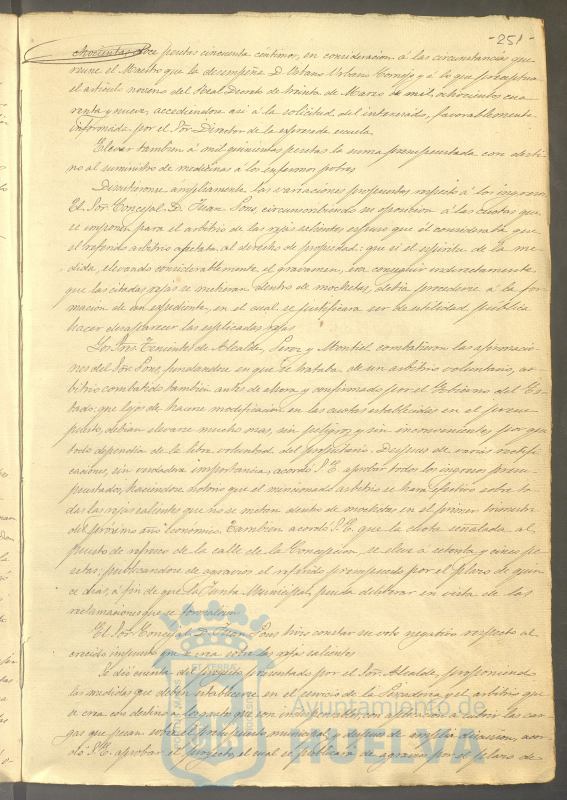 -251-
novecientas doce pesetas cincuenta céntimos, en consideracion á las circunstancias que
reune el Maestro que la desempeña D. Urbano Cornejo y á lo que preceptua
el artículo noveno del Real Decreto de treinta de Marzo de mil ochocientos cua
renta y nueve, accediendose asi á la solicitud del interesado, favorablemente
informada por el Sor. Director de la espresada escuela.
Elevar tambien á mil quinientas pesetas la suma presupuestada con desti
no al suministro de medicinas a los enfermos pobres
Discutieronse ampliamente las variaciones propuestas respecto á los ingresos
El Sor. Concejal D. Juan Pons, circunscribiendo su oposicion á las cuotas que
se imponen para el arbitrio de las rejas salientes espuso que él consideraba que
el referido arbitrio afectaba al derecho de propiedad: que si el espíritu de la me
dida, elevando considerablemente el gravamen, era conseguir indirectamente
que las citadas rejas se metieran dentro de mochetas, debia procederse á la for
macion de un expediente, en el cual se justificara ser de utilidad pública
hacer desaparecer las esplicadas rejas
Los Sres. Tenientes de Alcalde, Perez y Montiel combatieron las apreciacio
nes del Sor. Pons, fundandose en que se trataba de un arbitrio voluntario, ar
bitrio combatido tambien antes de ahora y confirmado por el Gobierno del Es
tado: que lejos de hacerse modificacion en las cuotas establecidas en el presu
puesto, debian elevarse mucho mas, sin peligro y sin inconveniente, por que
todo dependia de la libre voluntad del propietario. Despues de varias rectifi
caciones, sin verdadera importancia, acordó S.E. aprobar todos los ingresos presu
puestados, haciendose notorio que el mencionado arbitrio se hara efectivo sobre to
das las rejas salientes que no se metan dentro de mochetas en el primer trimestre
del próximo año económico. Tambien acordó S.E. que la cuota señalada al
puesto de refresco de la calle de la Concepcion, se eleve á setenta y cinco pe
setas: publicandose de agravios el referido presupuesto por el plazo de quin
ce dias, á fin de que la Junta Municipal pueda deliberar en vista de las
reclamaciones que se formalicen
El Sor. Concejal D. Juan Pons hizo constar su voto negativo respecto al
crecido impuesto que se crea sobre las rejas salientes
Se dió cuenta del proyecto presentado por el Sor. Alcalde, proponiendo
las medidas que deben establecerse en el servicio de la Panaderia y el arbitrio que
se crea con destino a los gastos que son indispensables, con aplicacion á cubrir las car
gas que pesan sobre el presupuesto municipal, y despues de amplia discusion, acor
dó S.E. aprobar el proyecto, el cual se publicará de agravios por el plazo de
Ayuntamiento de
HUELVA